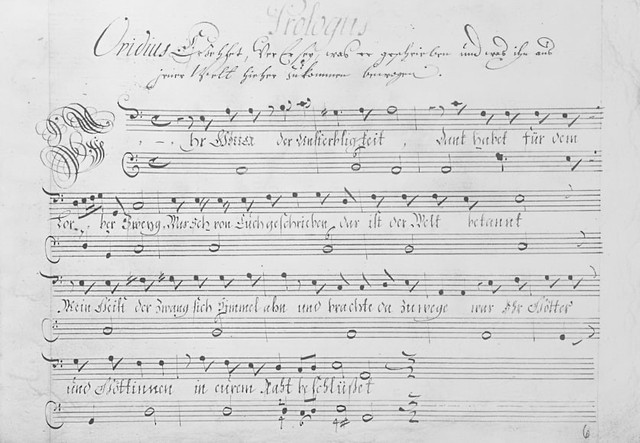 Prologus
Ovidius Erzehlet, was er geschrieben und was ihn aus
jener Welt hieher zukommen bewogen.
Ihr Götter der Unsterbligkeit, danckt habet für dem
Lor, ber Zweyg. Was ich von Euch geschrieben, dar ist der Welt bekannt
Mein Geist der zwang sich Himmel ahn und brachte da zuwege war Ihr Götter
und Göttinnen in eurem Raht beschlüßet
6